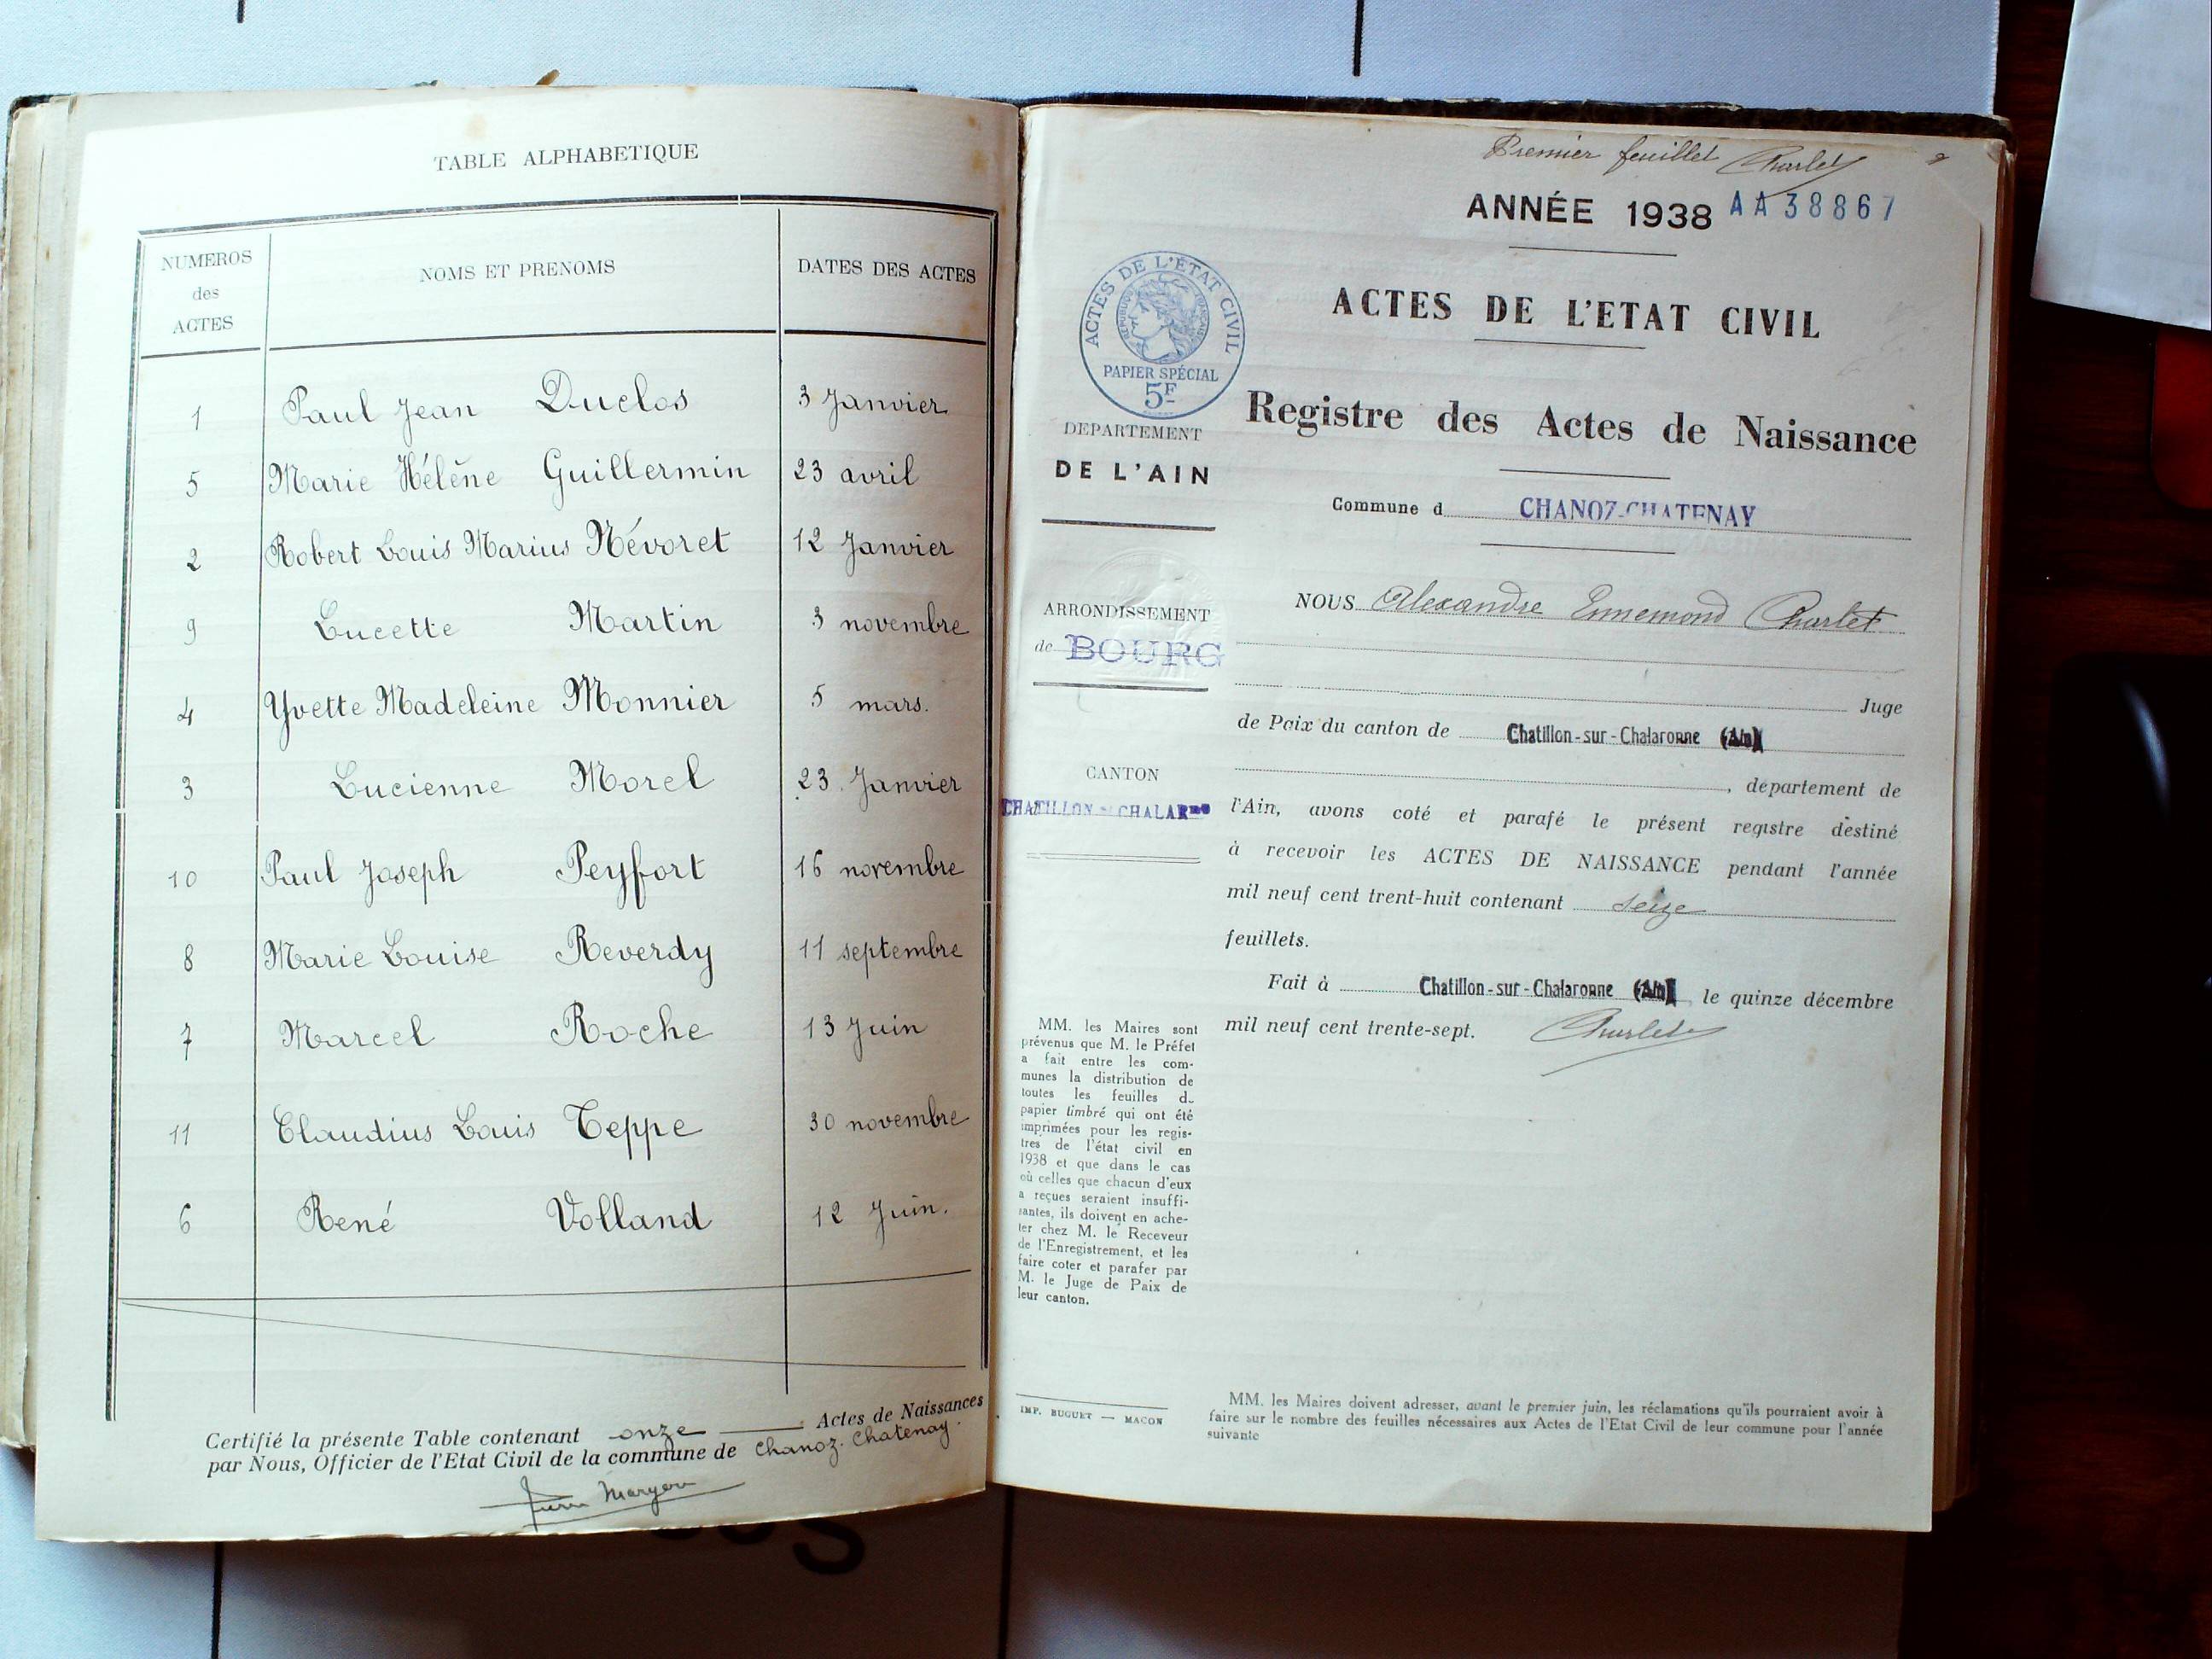 TABLE ALPHABETIQUE
NUMEROS des ACTES
NOMS ET PRENOMS
DATES DES ACTES
1 Paul Jean Duclos 3 Janvier
5 Marie Hélène Guillermin 23 avril
2 Robert Louis Marius Névoret 12 Janvier
9 Lucette Martin 3 novembre
4 Yvette Madeleine Monnier 5 mars.
3 Lucienne Morel 23 Janvier
10 Paul Joseph Peyfort 16 novembre
8 Marie Louise Reverdy 11 septembre
7 Marcel Roche 13 Juin
11 Claudius Louis Teppe 30 novembre
6 René Volland 12 Juin.
Certifié la présente Table contenant onze Actes de Naissances
par Nous, Officier de l'Etat Civil de la commune de Chanoz-Chatenay.
Premier feuillet Charlet
ANNÉE 1938 AA38867
ACTES DE L'ÉTAT CIVIL
RÉPUBLIQUE FRANÇAISE
PAPIER SPÉCIAL
5F
ACTES DE L'ETAT CIVIL
Registre des Actes de Naissance
DEPARTEMENT
DE L'AIN
Commune d CHANOZ-CHATENAY
ARRONDISSEMENT
de BOURG
CANTON
CHATILLON-s-CHALARne
NOUS Alexandre Ennemond Charlet
Juge
de Paix du canton de Chatillon-sur-Chalaronne (Ain)
, departement de
l'Ain, avons coté et parafé le présent registre destiné
à recevoir les ACTES DE NAISSANCE pendant l'année
mil neuf cent trent-huit contenant seize
feuillets.
Fait à Chatillon-sur-Chalaronne (Ain) le quinze décembre
mil neuf cent trente-sept. Charlet
MM. les Maires sont
prévenus que M. le Préfet
a fait entre les com-
munes la distribution de
toutes les feuilles de
papier timbré qui ont été
imprimées pour les regis-
tres de l'état civil en
1938 et que dans le cas
où celles que chacun d'eux
a reçues seraient insuffi-
santes, ils doivent en ache-
ter chez M. le Receveur
de l'Enregistrement, et les
faire coter et parafer par
M. le Juge de Paix de
leur canton.
IMP. BUGUET — MACON
MM. les Maires doivent adresser, avant le premier juin, les réclamations qu'ils pourraient avoir à
faire sur le nombre des feuilles nécessaires aux Actes de l'Etat Civil de leur commune pour l'année
suivante